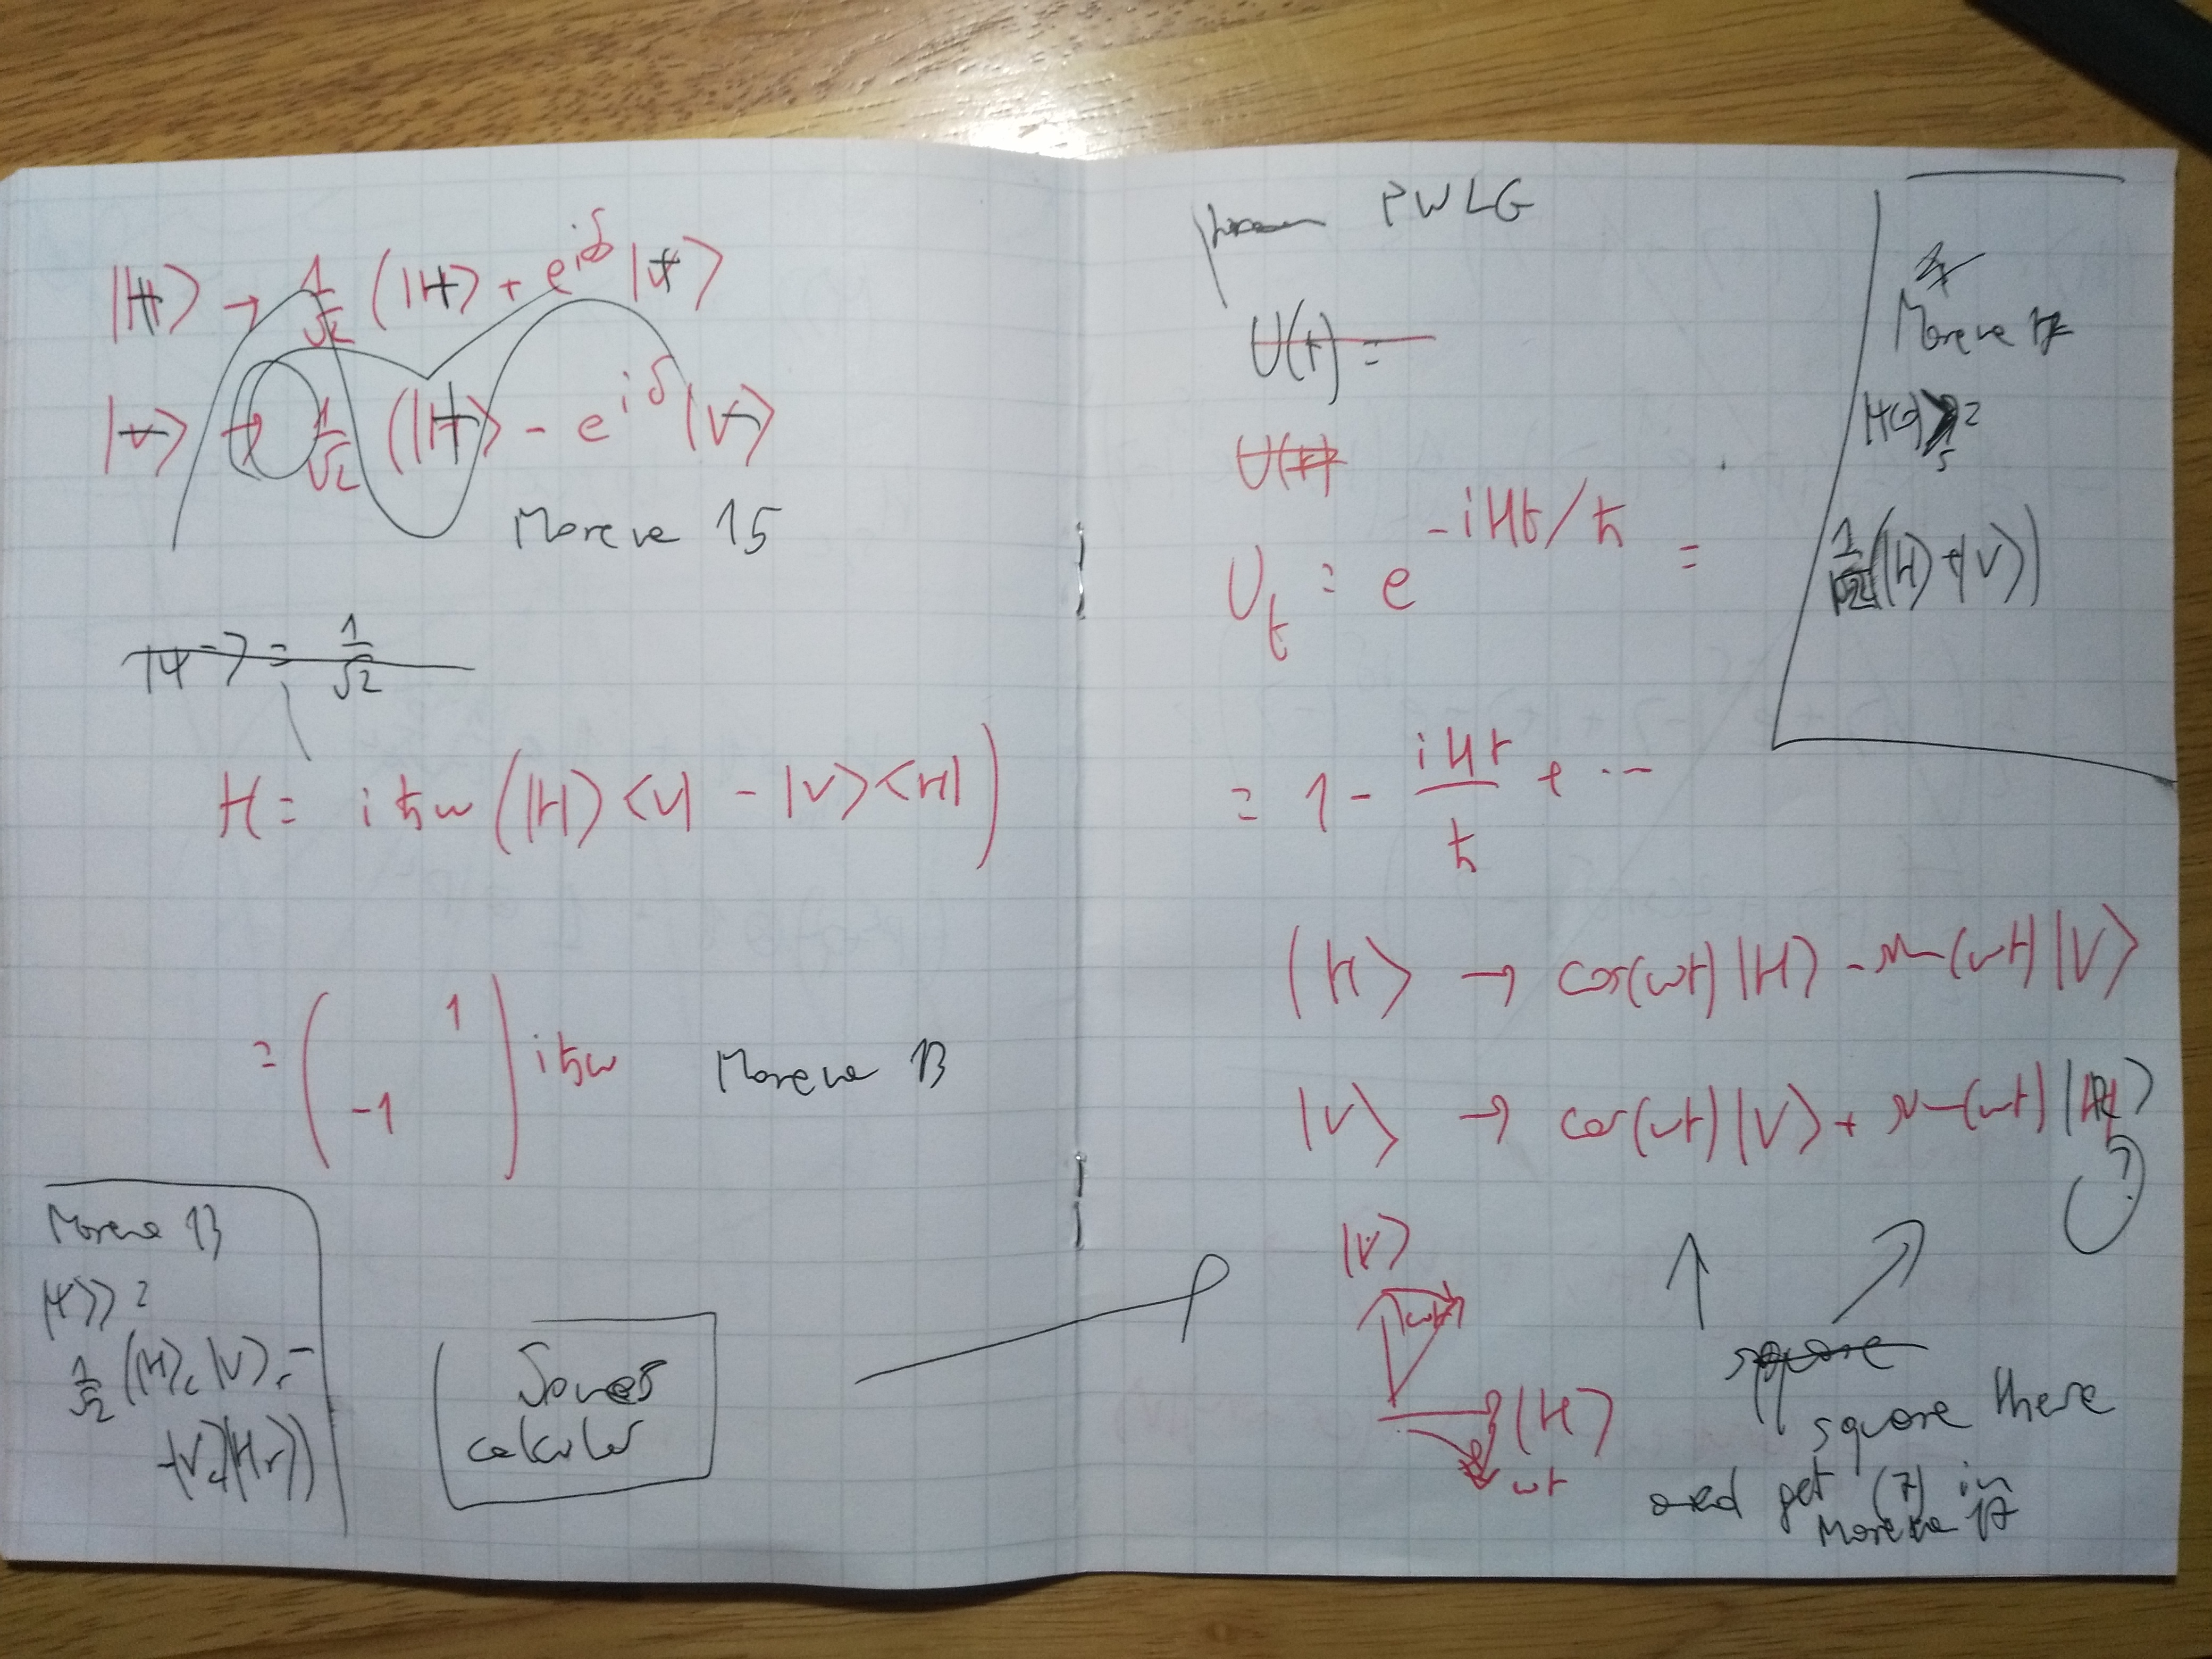 |H⟩ → 1/√2 (|H⟩ + e^{iδ} |V⟩
|V⟩ → 1/√2 (|H⟩ - e^{iδ} |V⟩
Moreva 15
|ψ-⟩ = 1/√2
H = iħω (|H⟩ <V| - |V⟩<H|)
= ( 1
-1 ) iħω Moreva 13
Moreva 13
|ψ⟩⟩ =
1/√2 (|H⟩c |V⟩r -
-|V⟩c|H⟩r)
calculer
PWLG
U(t) =
U(t)
U_t = e^{-iHt/ħ} =
= 1 - iHt/ħ + ...
|H⟩ → cos(ωt)|H⟩ - sin(ωt)|V⟩
|V⟩ → cos(ωt)|V⟩ + sin(ωt)|H⟩
|V⟩
ωt
|H⟩
ωt
square
square there
and get (7) in
Moreva 17
Moreva 17
1/√2 (|H⟩ + |V⟩)